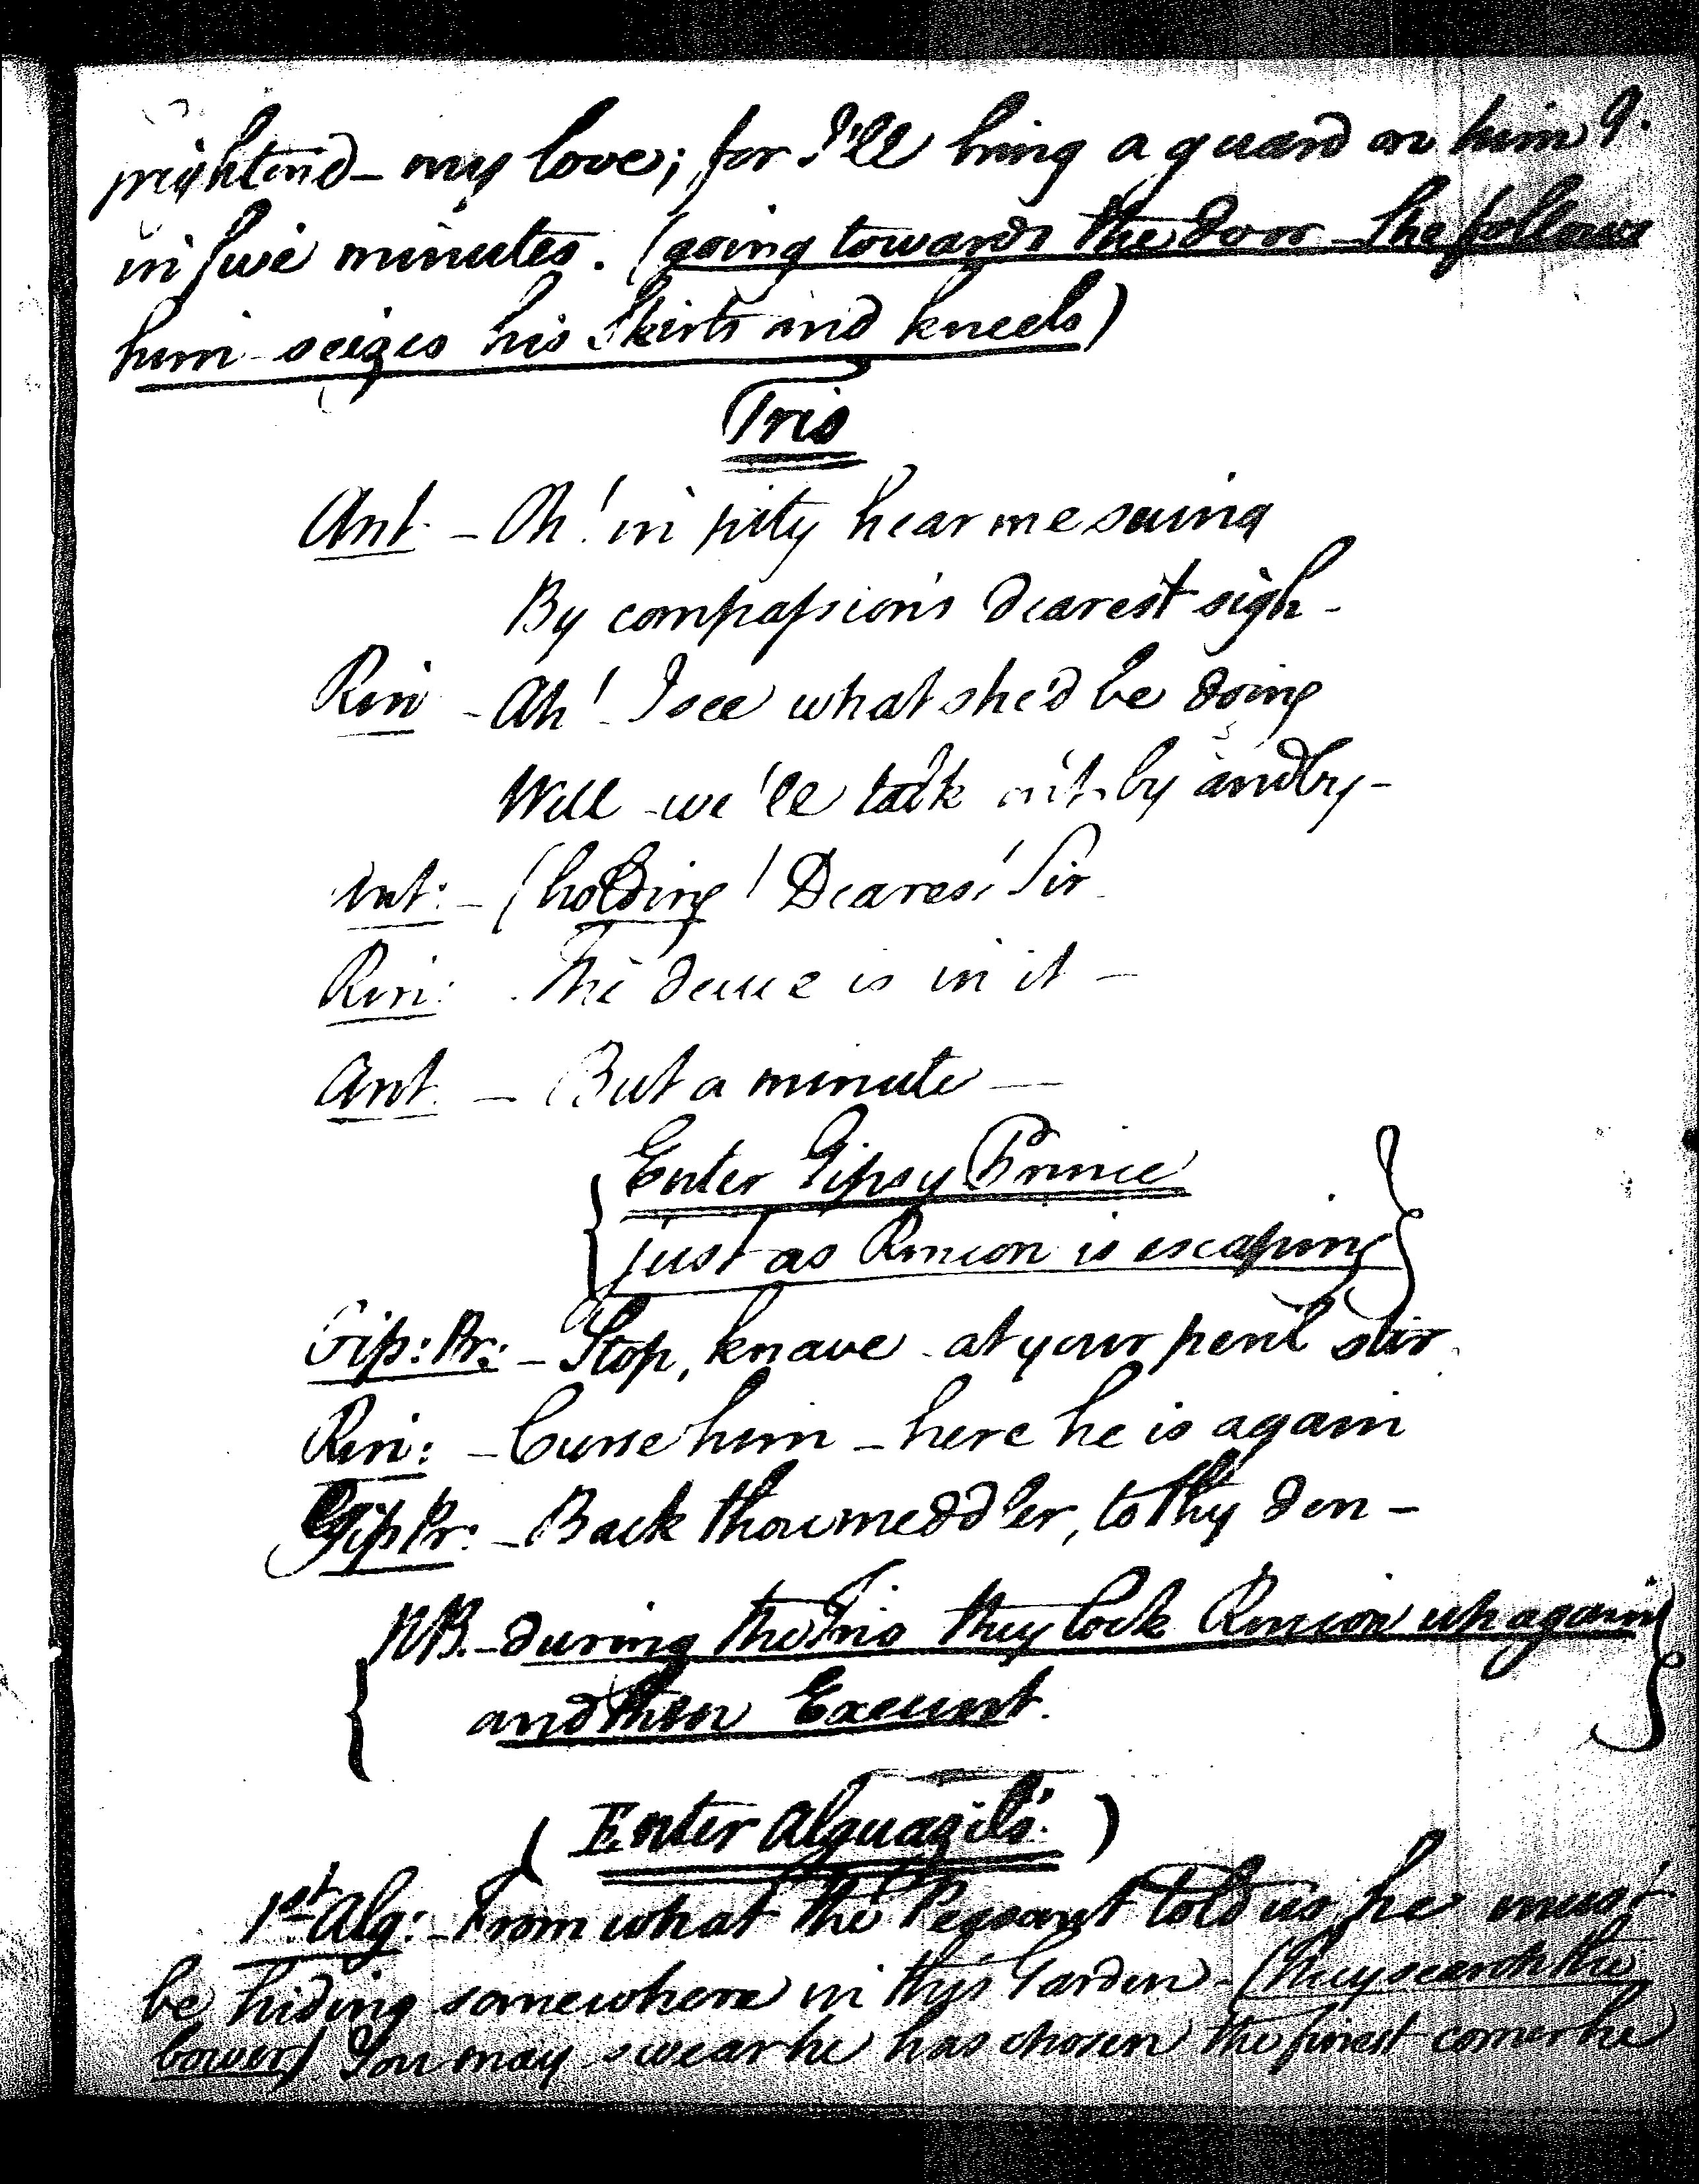 frightend – my love; for I'll bring a guard on him 9.
in five minutes. (going towards the door – She follows
him seizes his Skirts and kneels)
Trio
Ant – Oh! in pity hear me suing
By compassion's dearest sigh –
Rin – Ah! I see what she'd be doing
Well – we'll talk on't by and by –
Ant: – (holding) Dearest Sir
Rin: The deuce is in it –
Ant. – But a minute –
{ Enter Gipsy Prince }
{ just as Rincon is escaping }
Gip: Pr: – Stop, knave – at your peril stir
Rin: – Curse him – here he is again
Gip Pr: – Back thou meddler, to thy den –
{ NB. – during the Trio they lock Rincon up again }
{ and then Exeunt. }
( Enter Alguazils. )
1st Alg: – From what the Peasant told us, he must
be hiding somewhere in this Garden – (they search the
bower) You may swear he has chosen the finest corner he